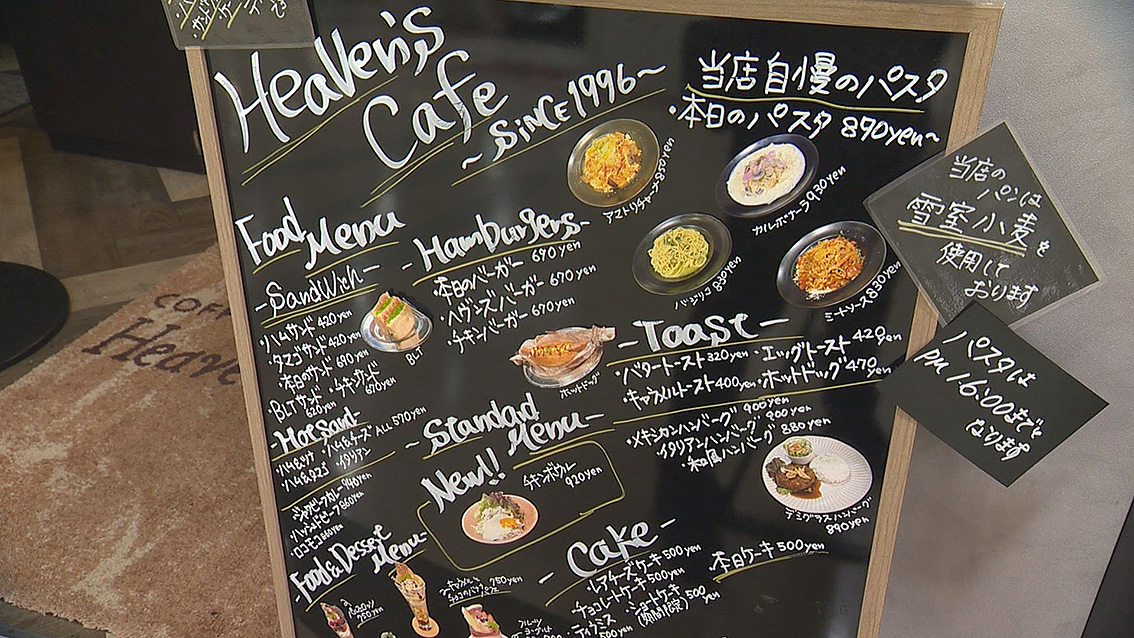 Heaven's
Cafe
~SINCE 1996~
当店自慢のパスタ
・本日のパスタ 890yen~
アマトリチャーナ
カルボナーラ930yen
バジリコ 830yen
ミートソース830yen
当店の
パンは
雪室小麦を
使用して
おります
パスタは
PM 16:00まで
なります
Food
Menu
-Sandwich-
・ハムサンド 420yen
・タマゴサンド 420yen
・本日のサンド 690yen
・BLTサンド
620yen
・チキンサンド
670yen
BLT
-Hamburgers-
・本日のバーガー 690yen
・ヘヴンズバーガー 670yen
・チキンバーガー 670yen
ホットドッグ
-Toast-
・バタートースト320yen
・エッグトースト420yen
・キャラメルトースト400yen
・ホットドッグ470yen
Hot Sand-
・ハム&ツナ
・ハム&チーズ
ALL 570yen
・ハム&タマゴ
・イタリアン
-Standard
Menu-
・メキシカンハンバーグ 900yen
・イタリアンハンバーグ 900yen
・和風ハンバーグ 880yen
デミグラスハンバーグ
890yen
New!!
チキンボウル
920yen
ロコモコ
Food&Dessert
Menu-
750yen
-Cake-
・レアチーズケーキ500yen
・チョコレートケーキ500yen
・ティラミス
500yen
・ショートケーキ
(期間限定) 500
yen
・本日ケーキ500yen
COFF
Heave